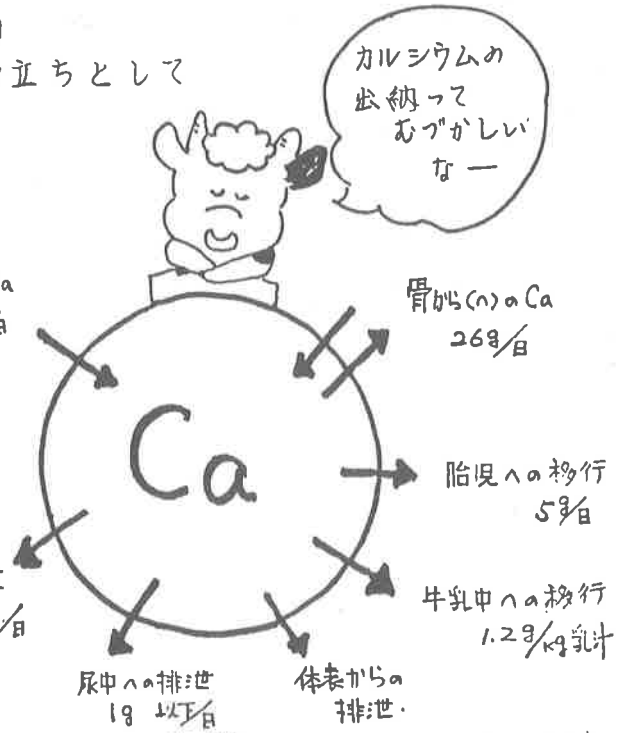 立ちとして
カルシウムの
出納って
むづかしい
なー
骨から(へ)のCa
26g/日
Ca
胎児への移行
5g/日
牛乳中への移行
1.2g/kg乳汁
尿中への排泄
1g以下/日
体表からの
排泄.